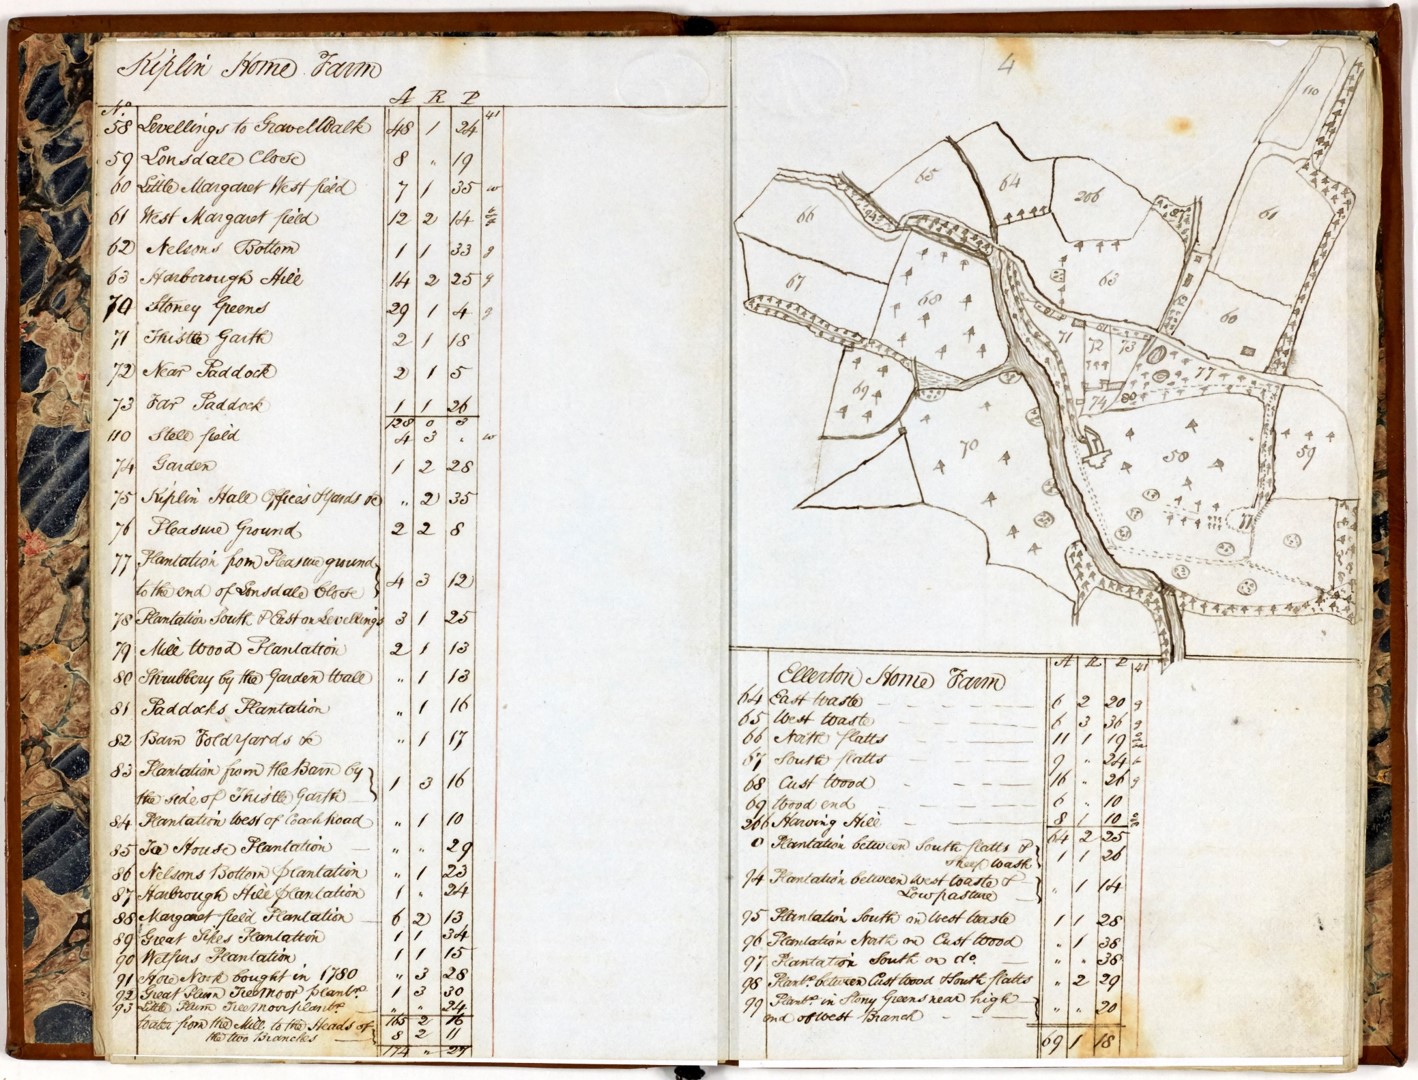 Kiplin Home Farm
A R P
No. 41
58 Levellings to Gravel Walk 48 1 24
59 Lonsdale Close 8 „ 19
60 Little Margaret West field 7 1 35 w
61 West Margaret field 12 2 14
62 Nelsons Bottom 1 1 33 g
63 Harborough Hill 14 2 25 g
70 Stoney Greens 29 1 4 g
71 Thistle Garth 2 1 18
72 Near Paddock 2 1 5
73 Far Paddock 1 1 26
128 0 3
110 Stell field 4 3 . w
74 Garden 1 2 28
75 Kiplin Hall Offices & yards &c „ 2 35
76 Pleasure Ground 2 2 8
77 Plantation from Pleasure ground
to the end of Lonsdale Close 4 3 12
78 Plantation South & East on Levellings 3 1 25
79 Mill Wood Plantation 2 1 13
80 Shrubbery by the Garden Wall „ 1 13
81 Paddocks Plantation „ 1 16
82 Barn Foldyards &c „ 1 17
83 Plantation from the Barn by
the side of Thistle Garth 1 3 16
84 Plantation West of Coach road „ 1 10
85 Ice House Plantation „ „ 29
86 Nelsons Bottom plantation „ 1 23
87 Harbrough Hill plantation 1 „ 24
88 Margaret field Plantation 6 2 13
89 Great Sikes Plantation 1 1 34
90 Plantation 1 1 15
91 Nook bought in 1780 „ 3 28
92 Great Plum Tree Moor plantn. 1 3 30
93 Little Plum Tree Moor plantn. „ „ 24
165 2 16
Water from the Mill to the Heads of
the two Branches 8 2 11
174 „ 27
4
110
65
64
206
66
94
61
63
67
68
60
71
72
73
77
69
74
80
70
58
59
77
A R P 41
Ellerton Home Farm
64 East Waste 6 2 20 g
65 West Waste 6 3 36 g
66 North flatts 11 1 19
67 South flatts 9 „ 24
68 Cust Wood 16 „ 26 g
69 Wood end 6 „ 10
206 Hill 8 1 10
64 2 25
0 Plantation between South flatts &
Sheep Wash 1 1 26
94 Plantation between West Waste &
Low pasture „ 1 14
95 Plantation South on West Waste 1 1 28
96 Plantation North on Cust Wood „ 1 38
97 Plantation South on do. „ „ 38
98 Plantn. between Cust Wood & South flatts „ 2 29
99 Plantn. in Stony Greens near high
end of West Branch „ „ 20
69 1 18